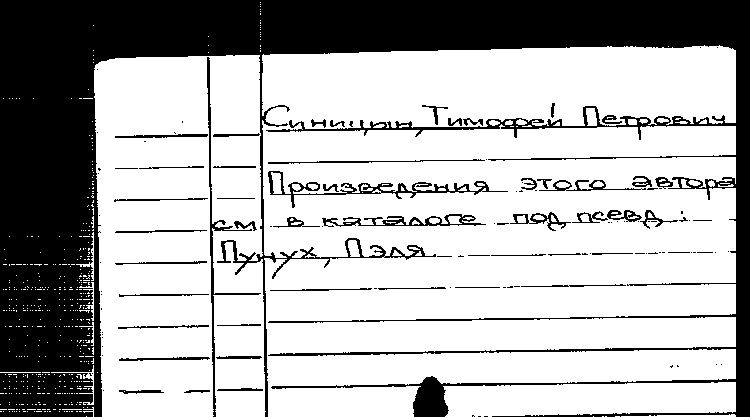 Синицын, Тимофей Петрович
Произведения этого автора
см. в каталоге под псевд.:
Пунух, Пэля.